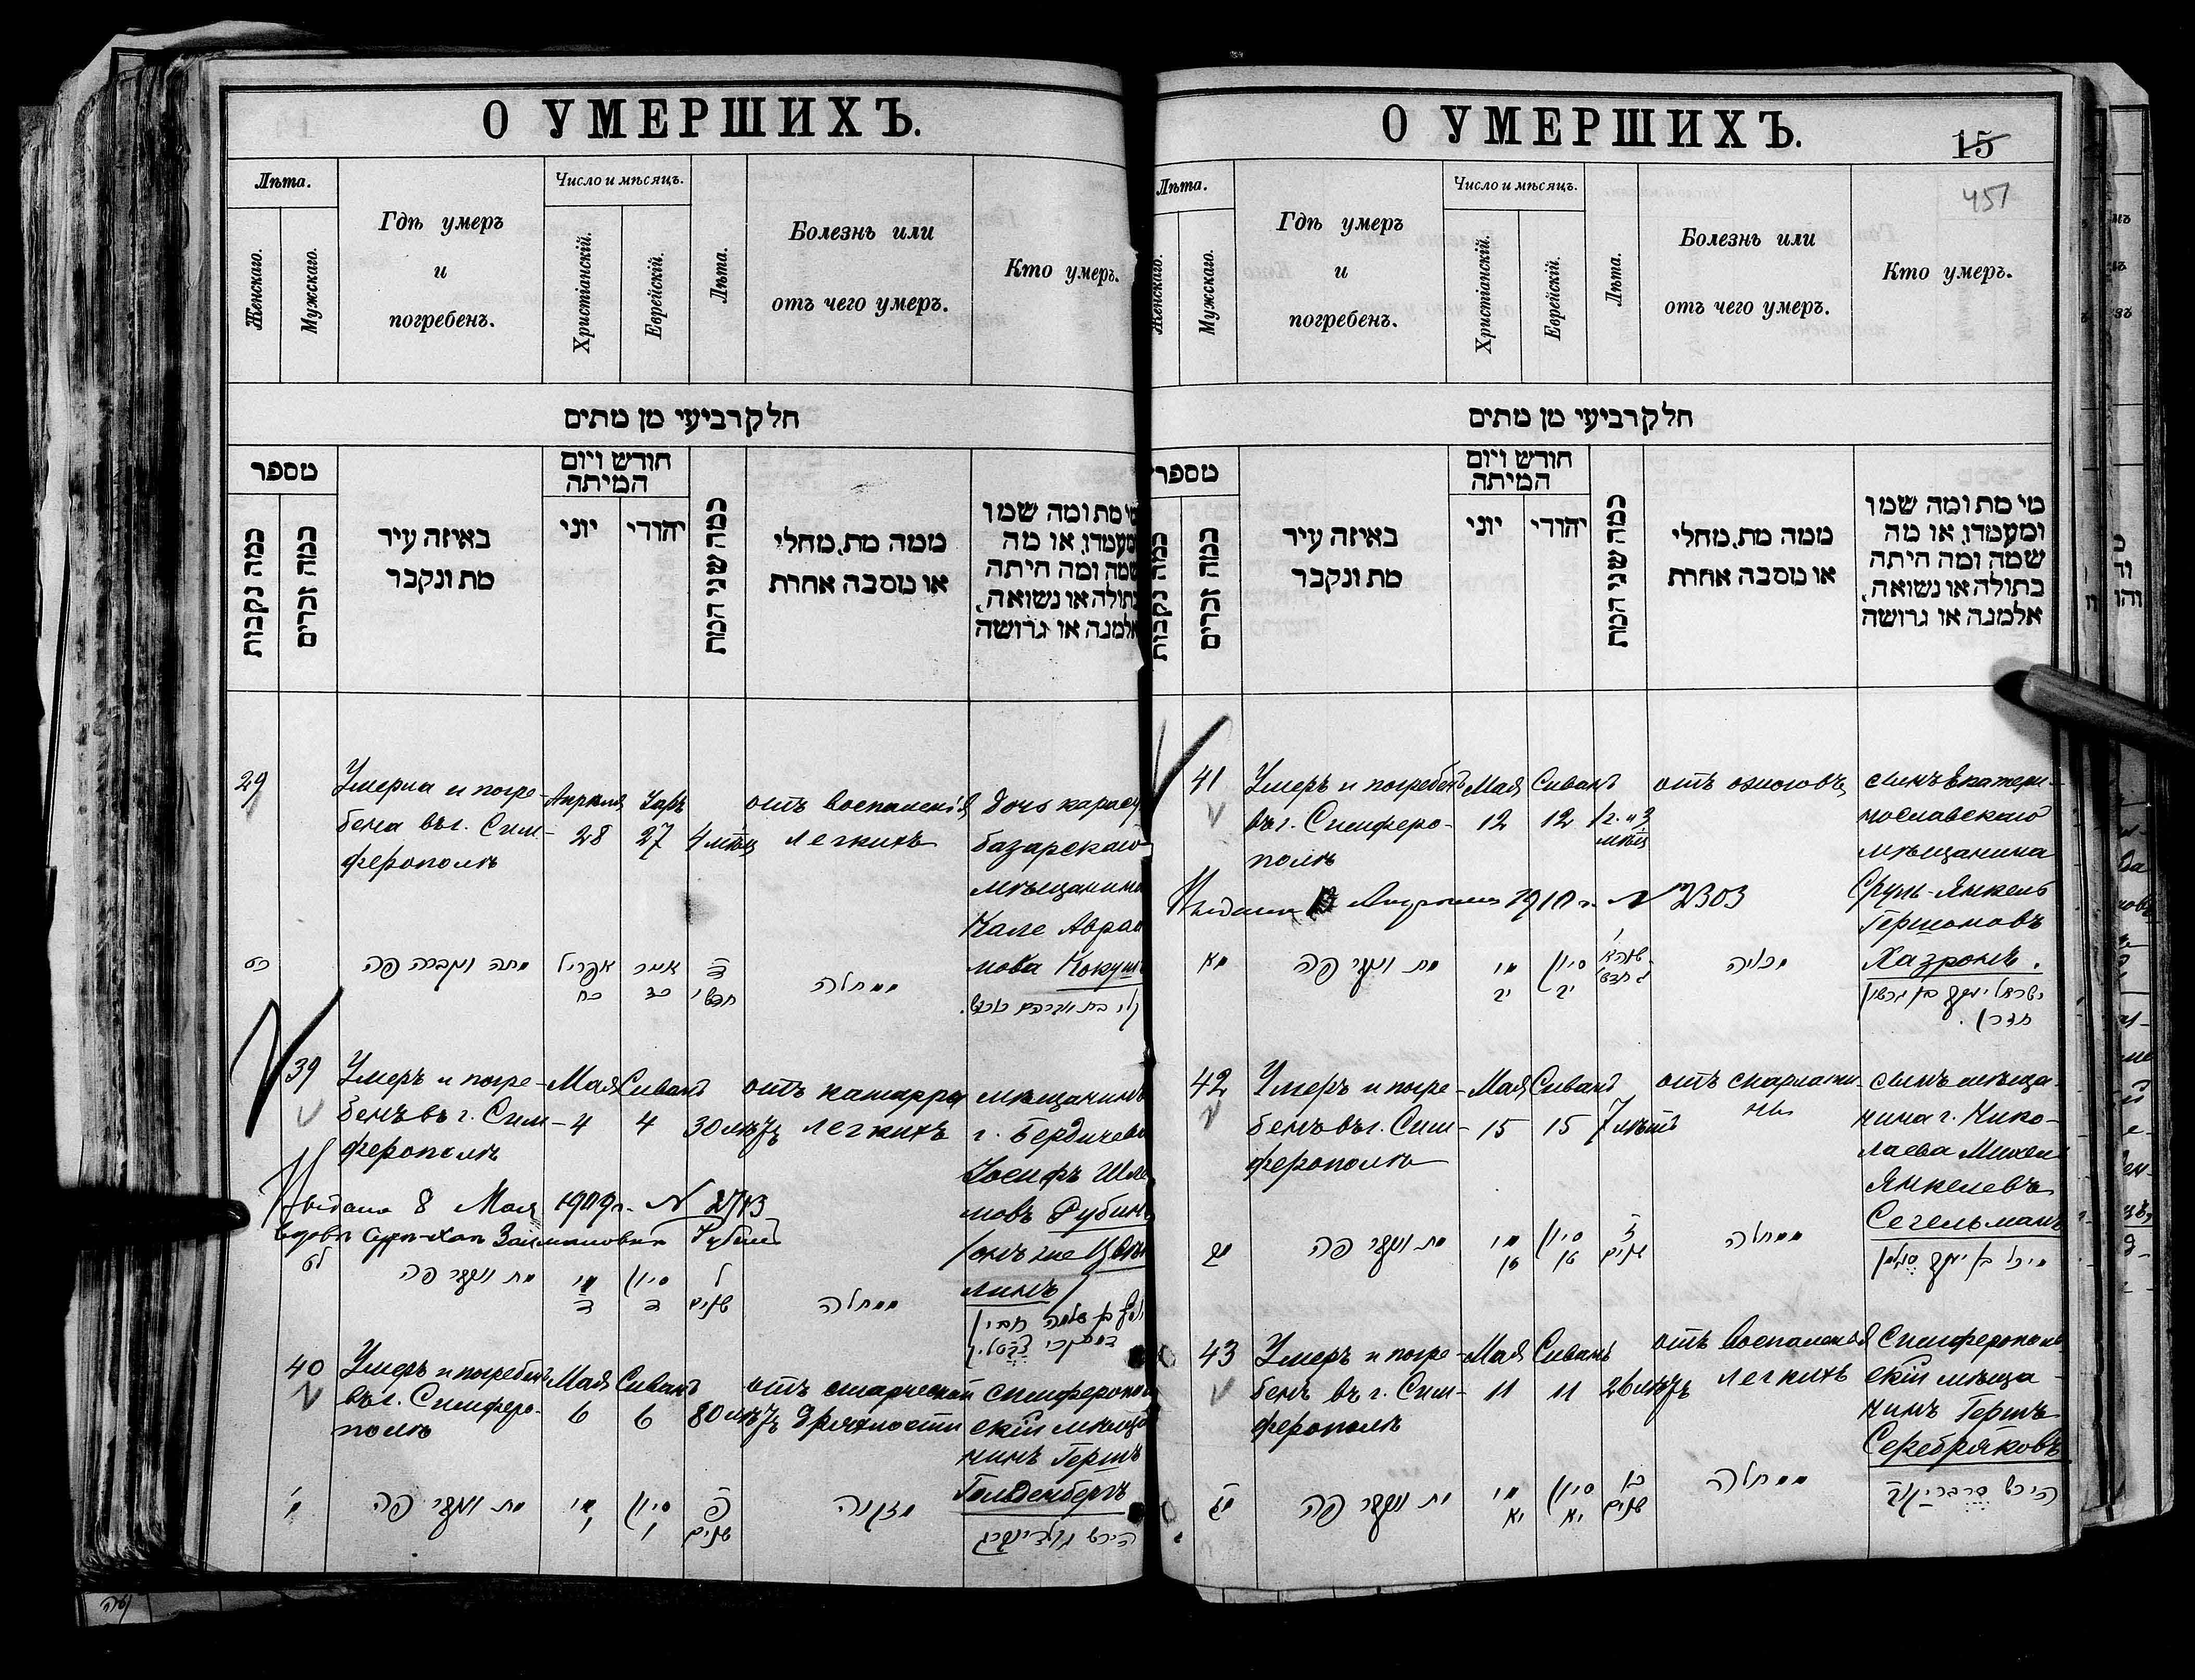 О УМЕРШИХЪ.
Лѣта.
Женскаго.
Мужскаго.
Гдѣ умеръ
и
погребенъ.
Число и мѣсяцъ.
Христіанскій.
Еврейскій.
Лѣта.
Болезнь или
отъ чего умеръ.
Кто умеръ.
חלק רביעי מן מתים
מספר
כמה נקבות
כמה זכרים
באיזה עיר
מת ונקבר
חודש ויום
המיתה
יוני
יהודי
כמה שני המת
ממה מת, מחלי
או מסבה אחרת
מי מת ומה שמו
ומעמדו, או מה
שמה ומה היתה
בתולה או נשואה,
אלמנה או גרושה
29
Умерла и погре-
бена въ г. Сим-
ферополѣ
Апрѣля
28
Iаръ
27
4 мѣц
отъ воспаленія
легкихъ
дочь карасу
базарскаго
мѣщанина
Кале Аврам
мова Кокуш
כט
מתה ונקברה פה
אפריל
כח
אייר
כז
ד
חדשי
ממחלה
39
Умеръ и погре-
бенъ въ г. Сим-
ферополѣ
Мая
4
Сиванъ
4
30 лѣтъ
отъ катарра
легкихъ
мѣщанинъ
г. Бердичева
Iосифъ Шле
мовъ Рубин
онъ же Цве
линъ
Выдана 8 Мая 1909 г. N 2713
לט
מת ונקבר פה
מאי
ד
סיון
ד
ל
שנים
ממחלה
40
Умеръ и погребенъ
въ г. Симферо-
полѣ
Мая
6
Сиванъ
6
80 лѣтъ
отъ старческой
дряхлости
симферополь
скій мѣща
нинъ Гершъ
Гольденбергъ
מ
מת ונקבר פה
מאי
ו
סיון
ו
פ
שנים
מזקנה
הירש גולדענבערג
О УМЕРШИХЪ.
15
451
Лѣта.
Женскаго.
Мужскаго.
Гдѣ умеръ
и
погребенъ.
Число и мѣсяцъ.
Христіанскій.
Еврейскій.
Лѣта.
Болезнь или
отъ чего умеръ.
Кто умеръ.
חלק רביעי מן מתים
מספר
כמה נקבות
כמה זכרים
באיזה עיר
מת ונקבר
חודש ויום
המיתה
יוני
יהודי
כמה שני המת
ממה מת, מחלי
או מסבה אחרת
מי מת ומה שמו
ומעמדו, או מה
שמה ומה היתה
בתולה או נשואה,
אלמנה או גרושה
41
Умеръ и погребенъ
въ г. Симферо-
полѣ
Мая
12
Сиванъ
12
1 г. и 3
мѣц
отъ ожоговъ
сынъ Екатери-
нославскаго
мѣщанина
Сруль-Янкель
Гершоновъ
Хазронъ.
1910 г. N 2303
מא
מת ונקבר פה
מאי
יב
סיון
יב
מכויה
ישראל יעקב בן גרשון
חזרון.
42
Умеръ и погре-
бенъ въ г. Сим-
ферополѣ
Мая
15
Сиванъ
15
7 лѣтъ
отъ скарлати-
ны
сынъ мѣща-
нина г. Нико-
лаева Михель
Янкелевъ
Сегельманъ
מב
מת ונקבר פה
מאי
טו
סיון
טו
ז
שנים
ממחלה
מיכל בן יעקב סגלמן
43
Умеръ и погре-
бенъ въ г. Сим-
ферополѣ
Мая
11
Сиванъ
11
26 лѣтъ
отъ воспаленія
легкихъ
Симферополь
скій мѣща-
нинъ Гершъ
Серебряковъ
מג
מת ונקבר פה
מאי
יא
סיון
יא
כו
שנים
ממחלה
הירש סרבריאקוב